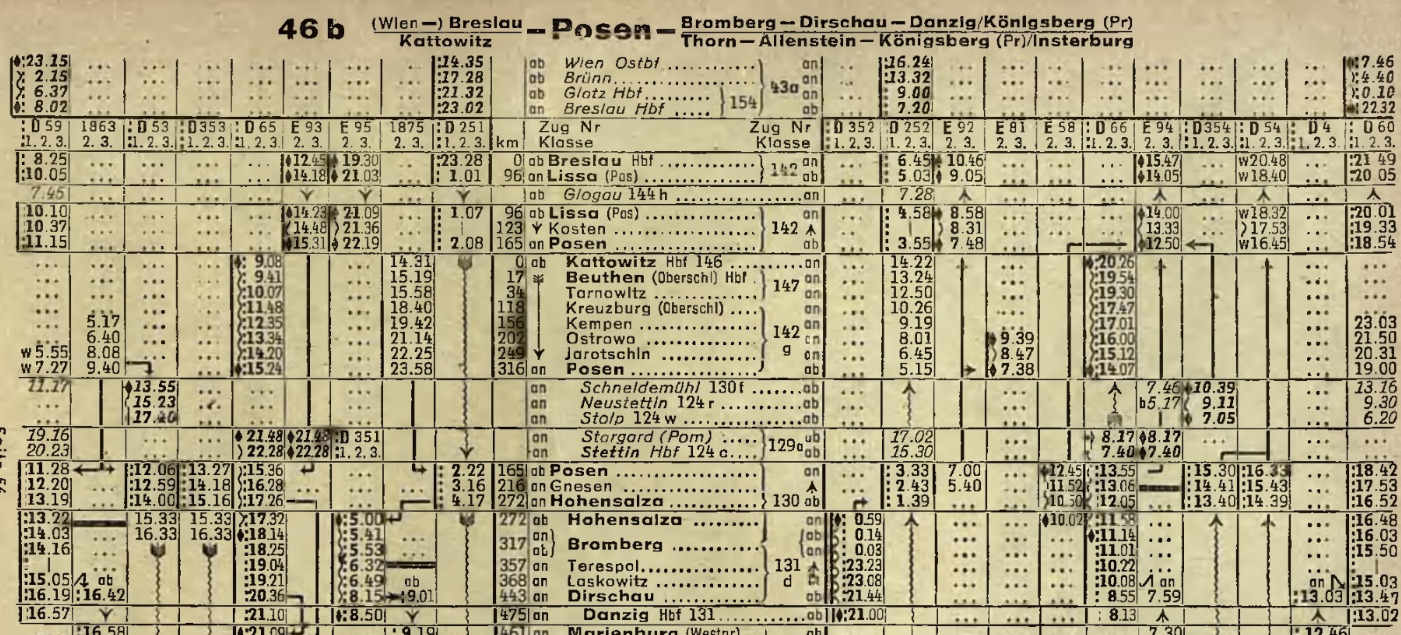 46 b (Wien—) Breslau Kattowitz — Posen — Bromberg — Dirschau — Danzig/Königsberg (Pr) Thorn — Allenstein — Königsberg (Pr)/Insterburg
23.15 ... ... ... ... ... ... ... 14.35 ab Wien Ostbf ............ an ... 16.24 ... ... ... ... ... ... ... ... 7.46
2.15 ... ... ... ... ... ... ... 17.28 ab Brünn ............ 43a an ... 13.32 ... ... ... ... ... ... ... ... 4.40
6.37 ... ... ... ... ... ... ... 21.32 ab Glatz Hbf ........ 154 an ... 9.00 ... ... ... ... ... ... ... ... 0.10
8.02 ... ... ... ... ... ... ... 23.02 an Breslau Hbf ab ... 7.20 ... ... ... ... ... ... ... ... 22.32
D 59 1863 D 53 D353 D 65 E 93 E 95 1875 D 251 Zug Nr Zug Nr D 352 D 252 E 92 E 81 E 58 D 66 E 94 D354 D 54 D 4 D 60
1. 2. 3. 2. 3. 1. 2. 3. 1. 2. 3. 1. 2. 3. 2. 3. 2. 3. 2. 3. 1. 2. 3. km Klasse Klasse 1. 2. 3. 1. 2. 3. 2. 3. 2. 3. 2. 3. 1. 2. 3. 2. 3. 1. 2. 3. 1. 2. 3. 1. 2. 3. 1. 2. 3.
8.25 ... ... ... ... 12.45 19.30 ... 23.28 0 ab Breslau Hbf ............ 142 an ... 6.45 10.46 ... ... ... 15.47 ... w20.48 ... 21 49
10.05 ... ... ... ... 14.18 21.03 ... 1.01 96 an Lissa (Pos) ............ ab ... 5.03 9.05 ... ... ... 14.05 ... w18.40 ... 20 05
7.45 ... ... ... ... ... ab Glogau 144 h ............ an ... 7.28 ... ... ... ... ...
10.10 ... ... ... ... 14.23 21.09 ... 1.07 96 ab Lissa (Pos) ............ an ... 4.58 8.58 ... ... ... 14.00 ... w18.32 ... 20.01
10.37 ... ... ... ... 14.48 21.36 ... 123 Kosten ............ 142 ... 8.31 ... ... ... 13.33 ... 17.53 ... 19.33
11.15 ... ... ... ... 15.31 22.19 ... 2.08 165 an Posen ............ ab ... 3.55 7.48 ... ... 12.50 w16.45 ... 18.54
... ... ... ... 9.08 ... 14.31 0 ab Kattowitz Hbf 146 ............ an ... 14.22 ... ... 20 26 ... ...
... ... ... ... 9.41 ... 15.19 17 Beuthen (Oberschl) Hbf . 147 an ... 13.24 ... ... 19.54 ... ...
... ... ... ... 10.07 ... 15.58 34 Tarnowitz ............ an ... 12.50 ... ... 19.30 ... ...
... ... ... ... 11.48 ... 18.40 118 Kreuzburg (Oberschl) .... an ... 10.26 ... ... 17.47 ... ...
... 5.17 ... ... 12.35 ... 19.42 156 Kempen ............ 142 an ... 9.19 ... ... 17.01 ... 23.03
... 6.40 ... ... 13.34 ... 21.14 202 Ostrowo ............ g an ... 8.01 9.39 ... 16.00 ... 21.50
w 5.55 8.08 ... ... 14.20 ... 22.25 249 Jarotschin ............ an ... 6.45 8.47 ... 15.12 ... 20.31
w 7.27 9.40 ... 15.24 ... 23.58 316 an Posen ............ ab ... 5.15 7.38 ... 14.07 ... 19.00
11.17 13.55 ... ... ... an Schneidemühl 130 f ............ ab ... ... ... 7.46 10.39 ... 13.16
... 15.23 ... ... ... an Neustettin 124 r ............ ab ... ... ... b5.17 9.11 ... 9.30
... 17.40 ... ... ... an Stolp 124 w ............ ab ... ... ... 7.05 ... 6.20
19.16 ... ... 21.48 21.48 D 351 an Stargard (Pom) ..... 129a ab ... 17.02 ... ... 8.17 8.17 ... ...
20.23 ... ... 22.28 22.28 1. 2. 3. an Stettin Hbf 124 a ..... ab ... 15.30 ... ... 7.40 7.40 ... ...
11.28 12.06 13.27 15.36 2.22 165 ab Posen ............ an ... 3.33 7.00 ... 12.45 13.55 15.30 16.33 ... 18.42
12.20 ... 12.59 14.18 16.28 ... 3.16 216 an Gnesen ............ ... 2.43 5.40 ... 11.52 13.06 14.41 15.43 ... 17.53
13.19 ... 14.00 15.16 17.26 4.17 272 an Hohensalza ............ 130 ab 1.39 ... ... 10.50 12.05 13.40 14.39 ... 16.52
13.22 15.33 15.33 17.32 ... 5.00 272 ab Hohensalza ......... an 0.59 ... ... 10.02 11.58 ... ... 16.48
14.03 16.33 16.33 18.14 ... 5.41 317 an Bromberg ............ 0.14 ... ... ... 11.14 ... ... 16.03
14.16 ... 18.25 ... 5.53 ... ab 0.03 ... ... ... 11.01 ... ... 15.50
... 19.04 ... 6.32 357 an Terespol ............ 131 23.23 ... ... ... 10.22 ... ...
15.05 ab 19.21 ... 6.49 ab 368 an Laskowitz ............ d 23.08 ... ... ... 10.08 an ... an 15.03
16.19 16.42 20.36 8.15 9.01 443 an Dirschau ............ ab 21.44 ... ... ... 8.55 7.59 ... 13.03 13.47
16.57 21.10 8.50 475 an Danzig Hbf 131 ............ ab 21.00 ... ... ... 8.13 13.02
16.58 21.09 9.19 461 an Marienburg (Westpr) ab 7.30 12.46